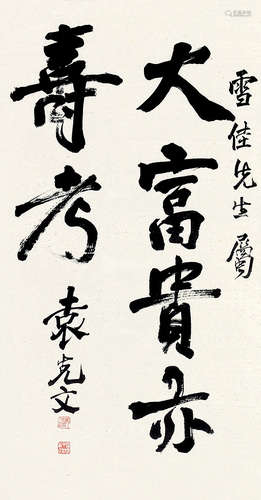 雪佳先生屬
大富貴亦
壽考
袁克文